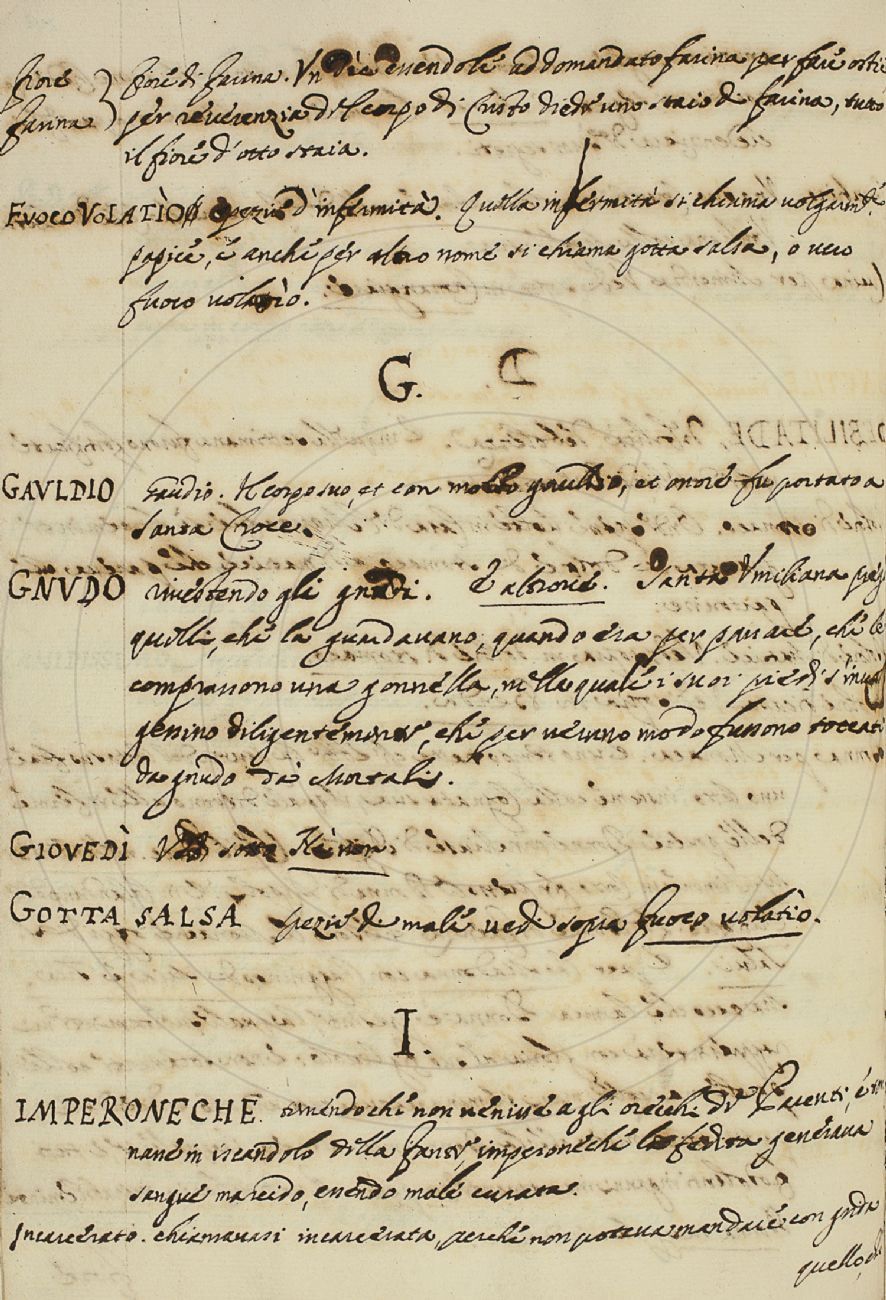 Fiore } fiore di farina. Vn dìe essendole addomandato farina per fare ostie
farina } per reverenzia del corpo di Cristo diede uno staio de farina, tutto
il fiore d'otto staia.
FVOCO VOLATÌO spezie d'infermità. Quella infermità si chiama volgarmte
papice, e anche per altro nome si chiama gotta salsa, o vero
fuoco volatìo.
G.
GAVLDIO Gaudio. Il corpo suo, et con molto gauldio, et onore fu portato a
Santa Croce.
GNVDO rivestendo gli gnudi. E altrove. Santa Vmiliana
quelli, che la guardavano, quando era per passare, che le
comprassono una gonnella, nella quale i suoi piedi s'invol
gessino diligentemente, che per veruno modo fussono toccati
da gnudo da Mortali.
GIOVEDÌ sotto
GOTTA SALSA spezie di male vedi sopra fuoco volatìo.
I.
IMPERONECHE temendo che non venisse agli orecchi de' Parenti, e
nasse in iscandolo della fante, imperoneche la fedita generava
sangue marcido, essendo male curata.
Incarcerato. chiamavasi incarcerata, perche non poteva mandare con
quello,